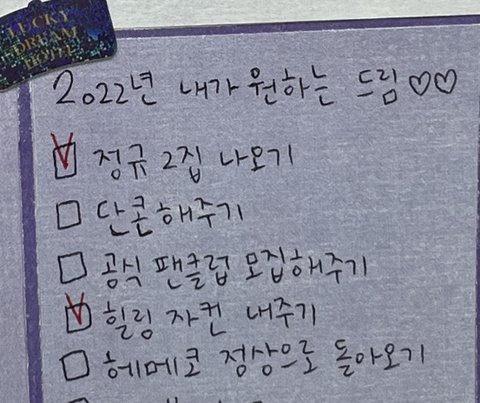 LUCKY
DREAM
HOTEL
2022년 내가 원하는 드림♡♡
정규 2집 나오기
단콘해주기
공식 팬클럽 모집해주기
힐링 자컨 내주기
헤메코 정상으로 돌아오기